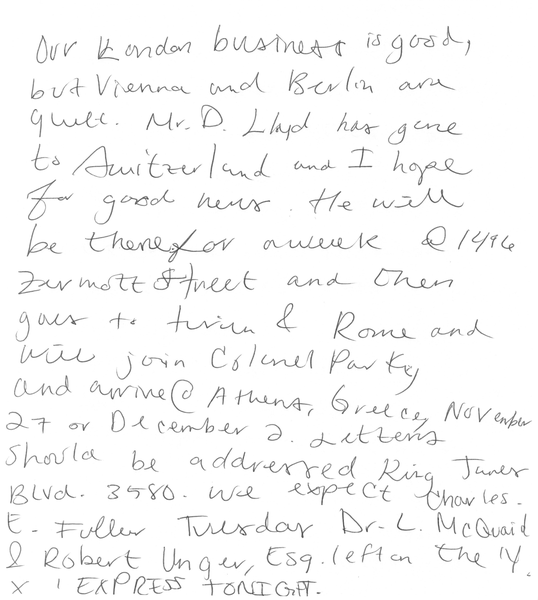 Our London business is good,
but Vienna and Berlin are
quiet. Mr. D. Lloyd has gone
to Switzerland and I hope
for good news. He will
be there for a week @ 1496
Zermott Street and then
goes to Turin & Rome and
will join Colonel Parky
and arrive @ Athens, Greece, November
27 or December 2. Letters
should be addressed King James
Blvd. 3580. We expect Charles.
E. Fuller Tuesday Dr. L. McQuaid
& Robert Unger, Esq. left on the 'Y.
X ' EXPRESS TONIGHT.